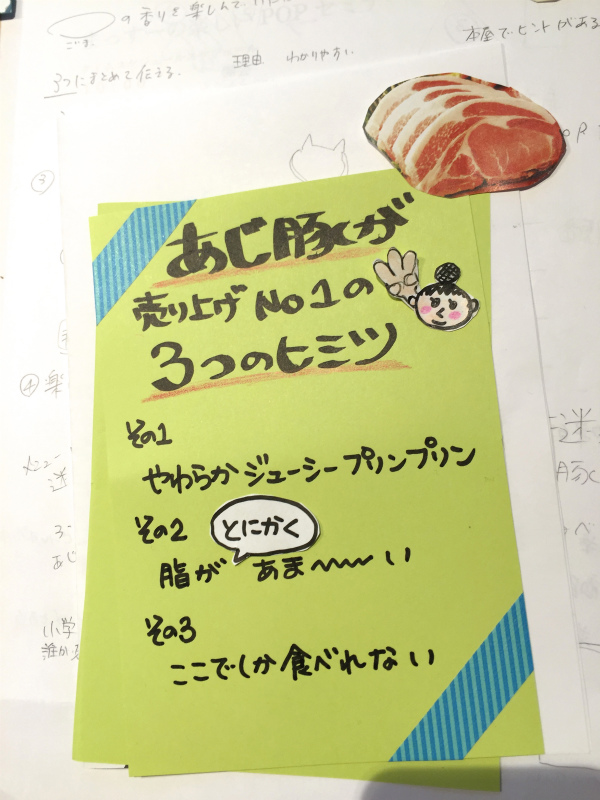 の香りを楽しんで
本屋でヒントがある
理由 わかりやすい
3つにまとめて伝える.
③
あじ豚が
売り上げNo1の
3つのヒミツ
④楽
その1
メニュー
やわらかジューシープリンプリン
迷
迷
豚
その2 とにかく
脂が あま〜〜い
あじ
小学
誰か
その3
ここでしか食べれない